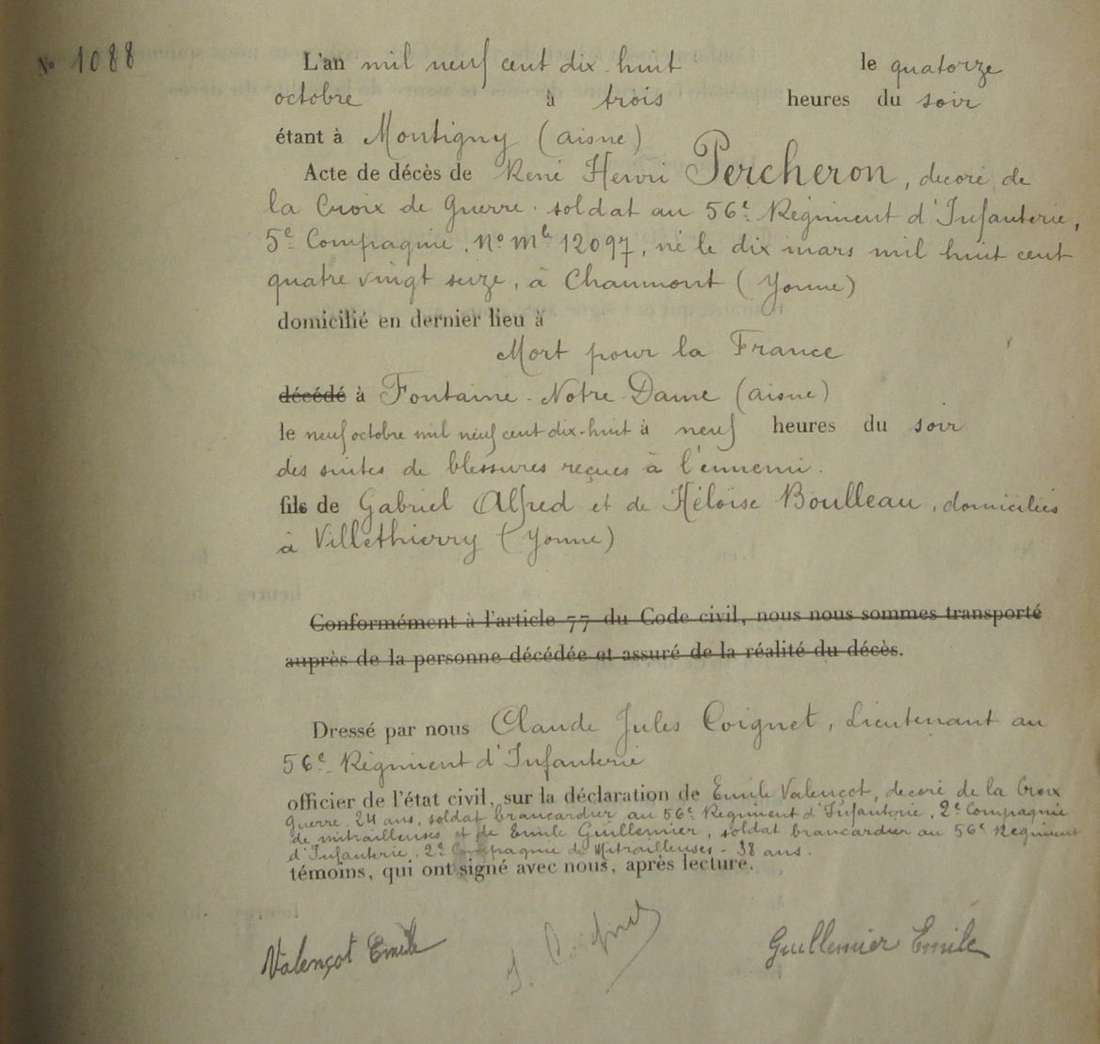 N° 1088
L'an mil neuf cent dix-huit le quatorze
octobre à trois heures du soir
étant à Montigny (aisne)
Acte de décès de René Henri Percheron, décoré de
la Croix de Guerre. soldat au 56e Régiment d'Infanterie,
5e Compagnie, No Mle 12097, né le dix mars mil huit cent
quatre vingt seize, à Chaumont (Yonne)
domicilié en dernier lieu à
Mort pour la France
décédé à Fontaine-Notre-Dame (aisne)
le neuf octobre mil neuf cent dix-huit à neuf heures du soir
des suites de blessures reçues à l'ennemi.
fils de Gabriel Alfred et de Héloïse Boulleau, domiciliés
à Villethierry (Yonne)
Conformément à l'article 77 du Code civil, nous nous sommes transporté
auprès de la personne décédée et assuré de la réalité du décès.
Dressé par nous Claude Jules Coignet, Lieutenant au
56e Régiment d'Infanterie
officier de l'état civil, sur la déclaration de Emile Valençot, décoré de la Croix
Guerre, 24 ans, soldat brancardier au 56e Régiment d'Infanterie, 2e Compagnie
de mitrailleuses et de Emile Guillemier, soldat brancardier au 56e Régiment
d'Infanterie, 2e Compagnie de Mitrailleuses - 38 ans.
témoins, qui ont signé avec nous, après lecture.
Valençot Emile J. Coignet Guillemier Emile